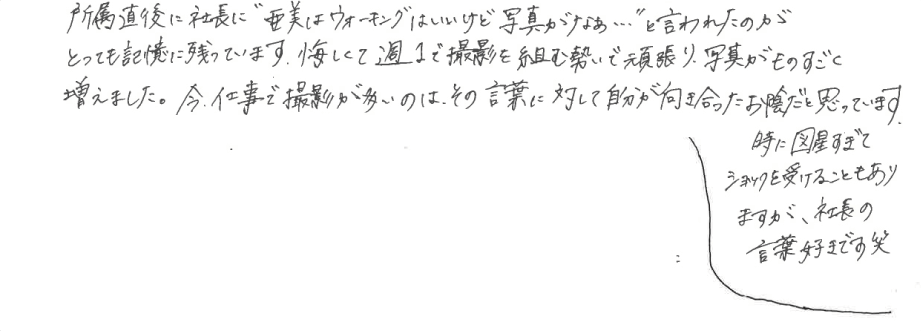 所属直後に社長に"亜美はウォーキングはいいけど写真がなぁ…"と言われたのが
とっても記憶に残っています。悔しくて週1で撮影を組む勢いで頑張り、写真がものすごく
増えました。今、仕事で撮影が多いのは、その言葉に対して自分が向き合ったお陰だと思っています。
時に図星すぎて
ショックを受けることもあり
ますが、社長の
言葉好きです笑